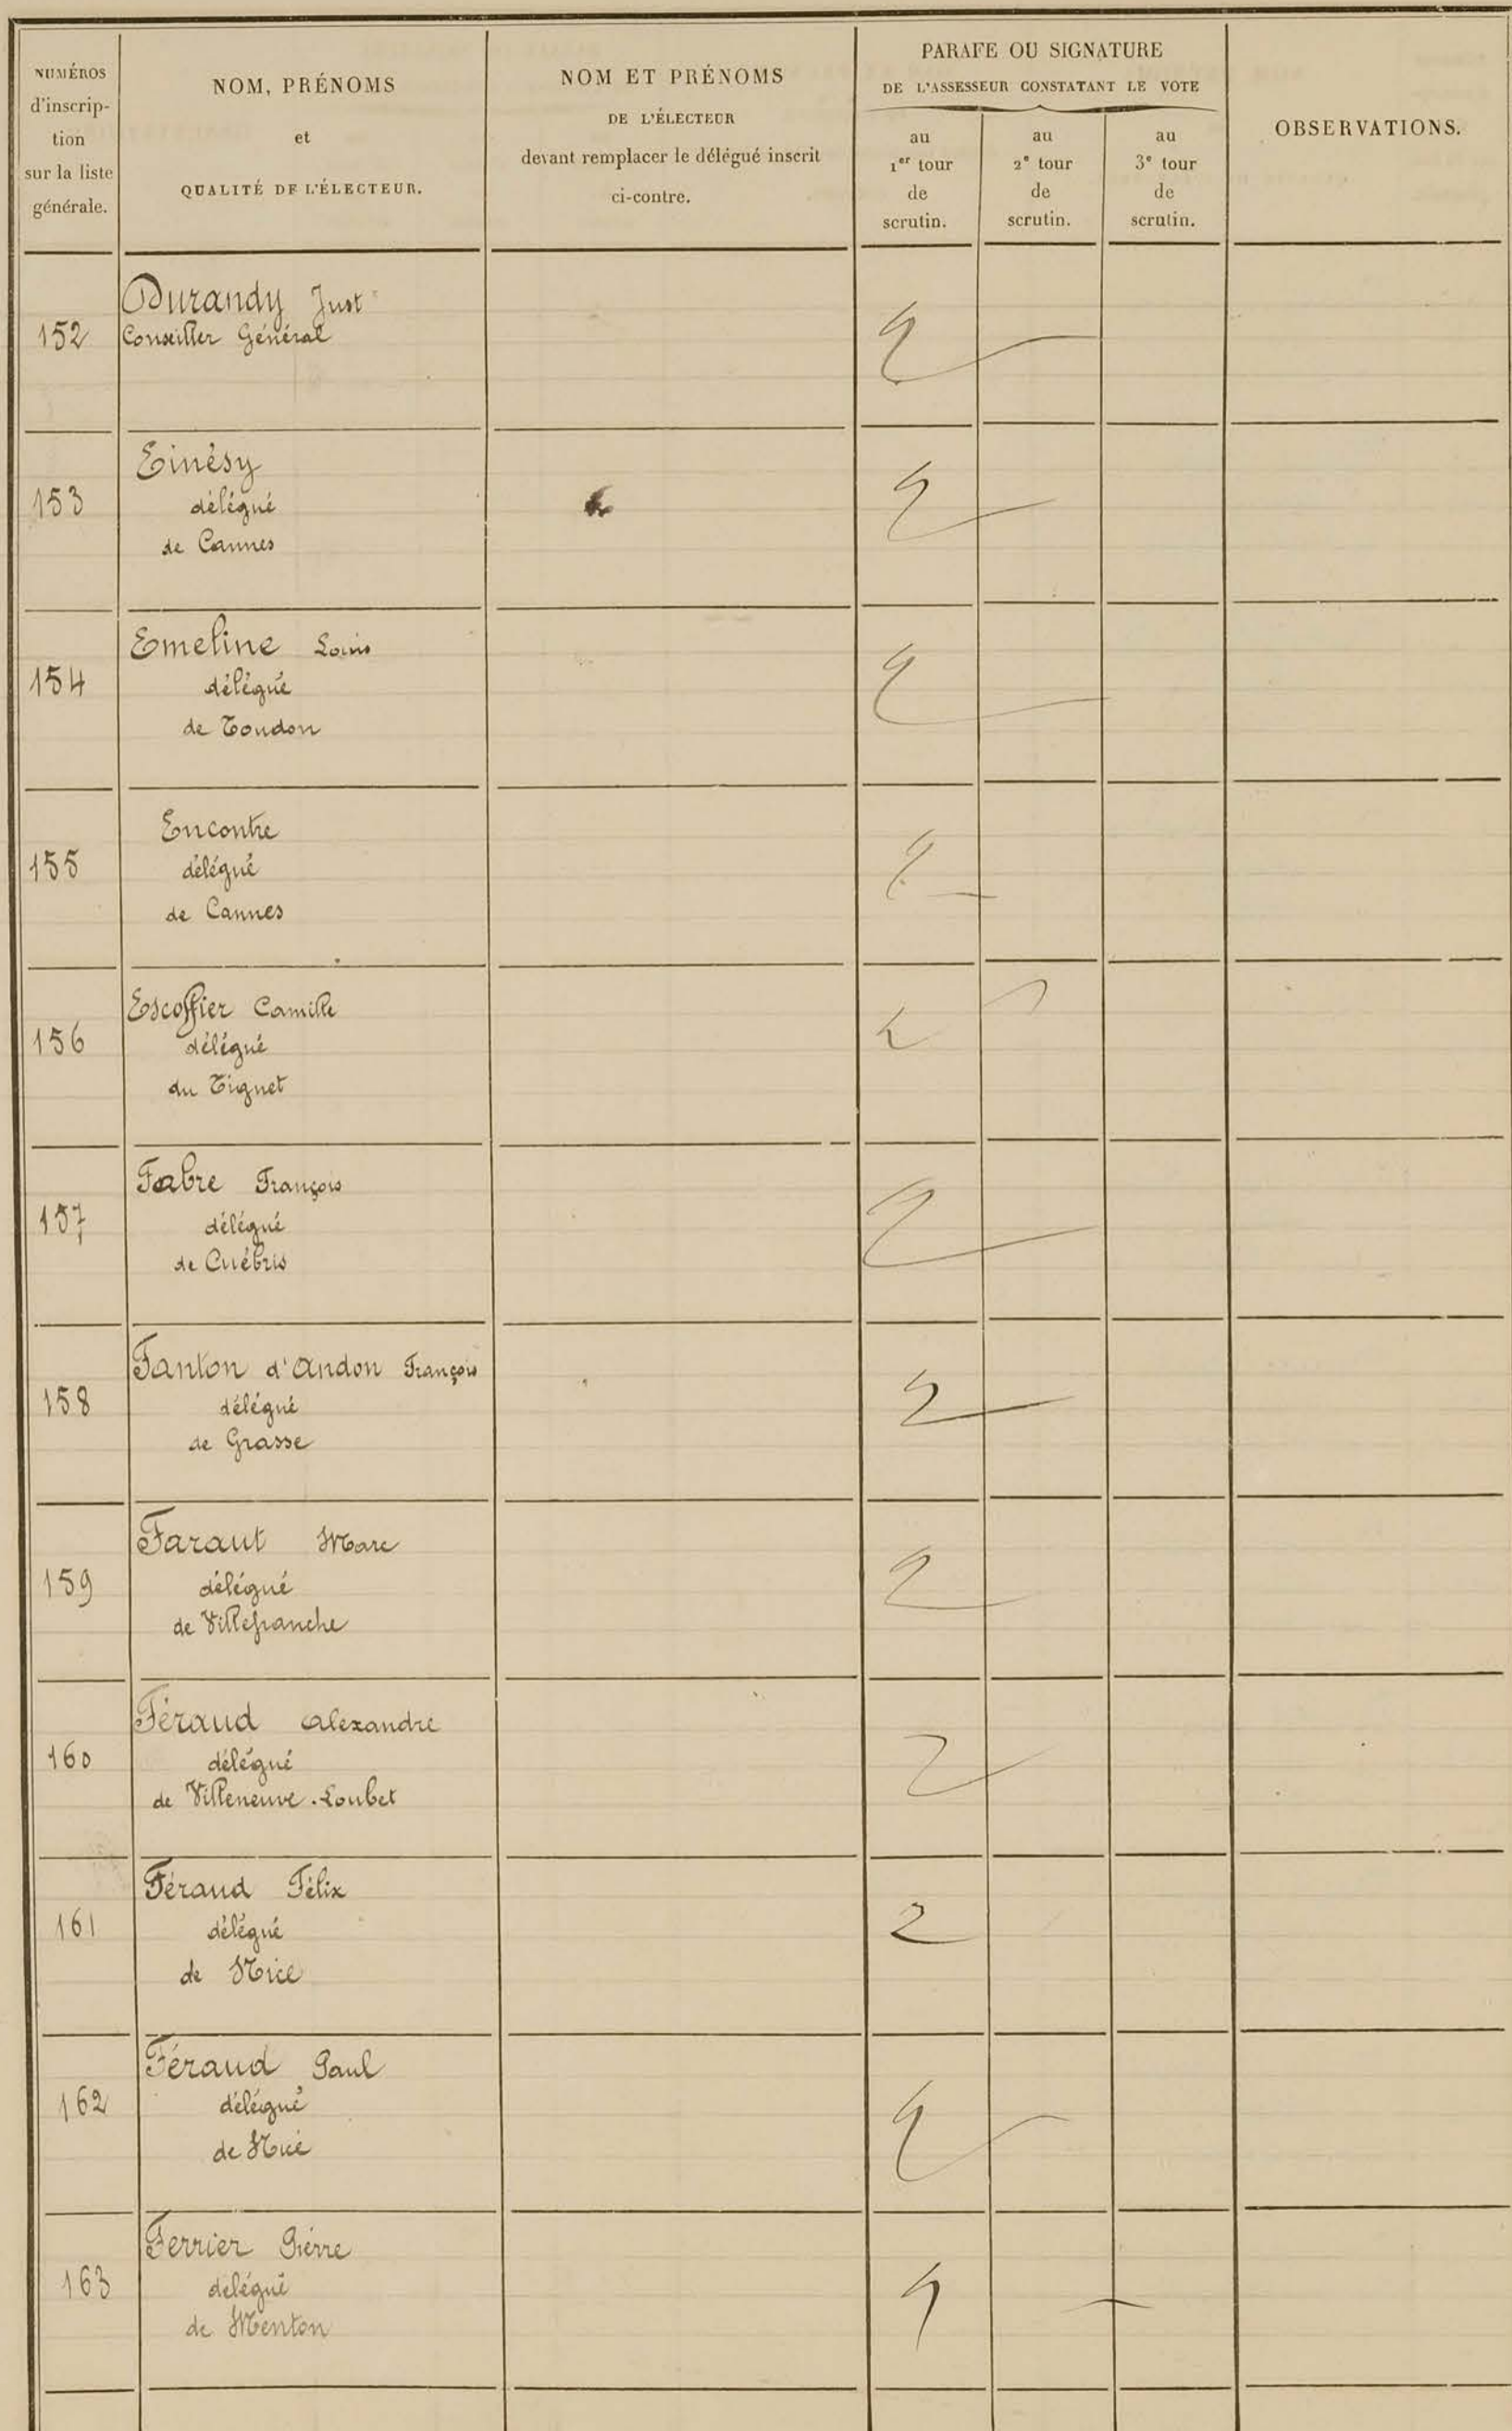 NUMÉROS
d'inscrip-
tion
sur la liste
générale.
NOM, PRÉNOMS
et
QUALITÉ DE L'ÉLECTEUR.
NOM ET PRÉNOMS
DE L'ÉLECTEUR
devant remplacer le délégué inscrit
ci-contre.
PARAFE OU SIGNATURE
DE L'ASSESSEUR CONSTATANT LE VOTE
au
1er tour
de
scrutin.
au
2e tour
de
scrutin.
au
3e tour
de
scrutin.
OBSERVATIONS.
152
Durandy Just
Conseiller Général
153
Einésy
délégué
de Cannes
154
Emeline Louis
délégué
de Toudon
155
Encontre
délégué
de Cannes
156
Escoffier Camille
délégué
du Tignet
157
Fabre François
délégué
de Cuébris
158
Fanton d'Andon François
délégué
de Grasse
159
Faraut Marc
délégué
de Villefranche
160
Féraud Alexandre
délégué
de Villeneuve-Loubet
161
Féraud Félix
délégué
de Nice
162
Féraud Paul
délégué
de Nice
163
Ferrier Pierre
délégué
de Menton